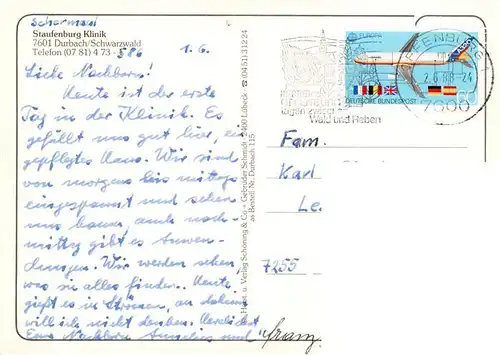 Schermani
Staufenburg Klinik
7601 Durbach/Schwarzwald
Telefon (07 81) 4 73 - 586 1.6.
Liebe Nachbarn!
Heute ist der erste
Tag in der Klinik. Es
gefällt uns gut hier, ein
gepflegtes Haus. Wir sind
von morgens bis mittags
eingespannt und sehen
uns kaum, auch nach-
mittag gibt es Anwen-
dungen. Wir werden sehen,
was sie alles finden. Heute
gießt es in Strömen, an daheim
will ich nicht denken. Herzlichst
Eure Nachbarn Angelina und Franz
Horst u. Verlag Schöning & Co · Gebrüder Schmidt · 2400 Lübeck · ☎ (04 51) 3 12 24
Bestell-Nr. Durbach 115
EUROPA
DEUTSCHE BUNDESPOST
OFFENBURG
2.6.88-24
7600
zwischen
Wald und Reben
Fam.
Karl
Le.
7255